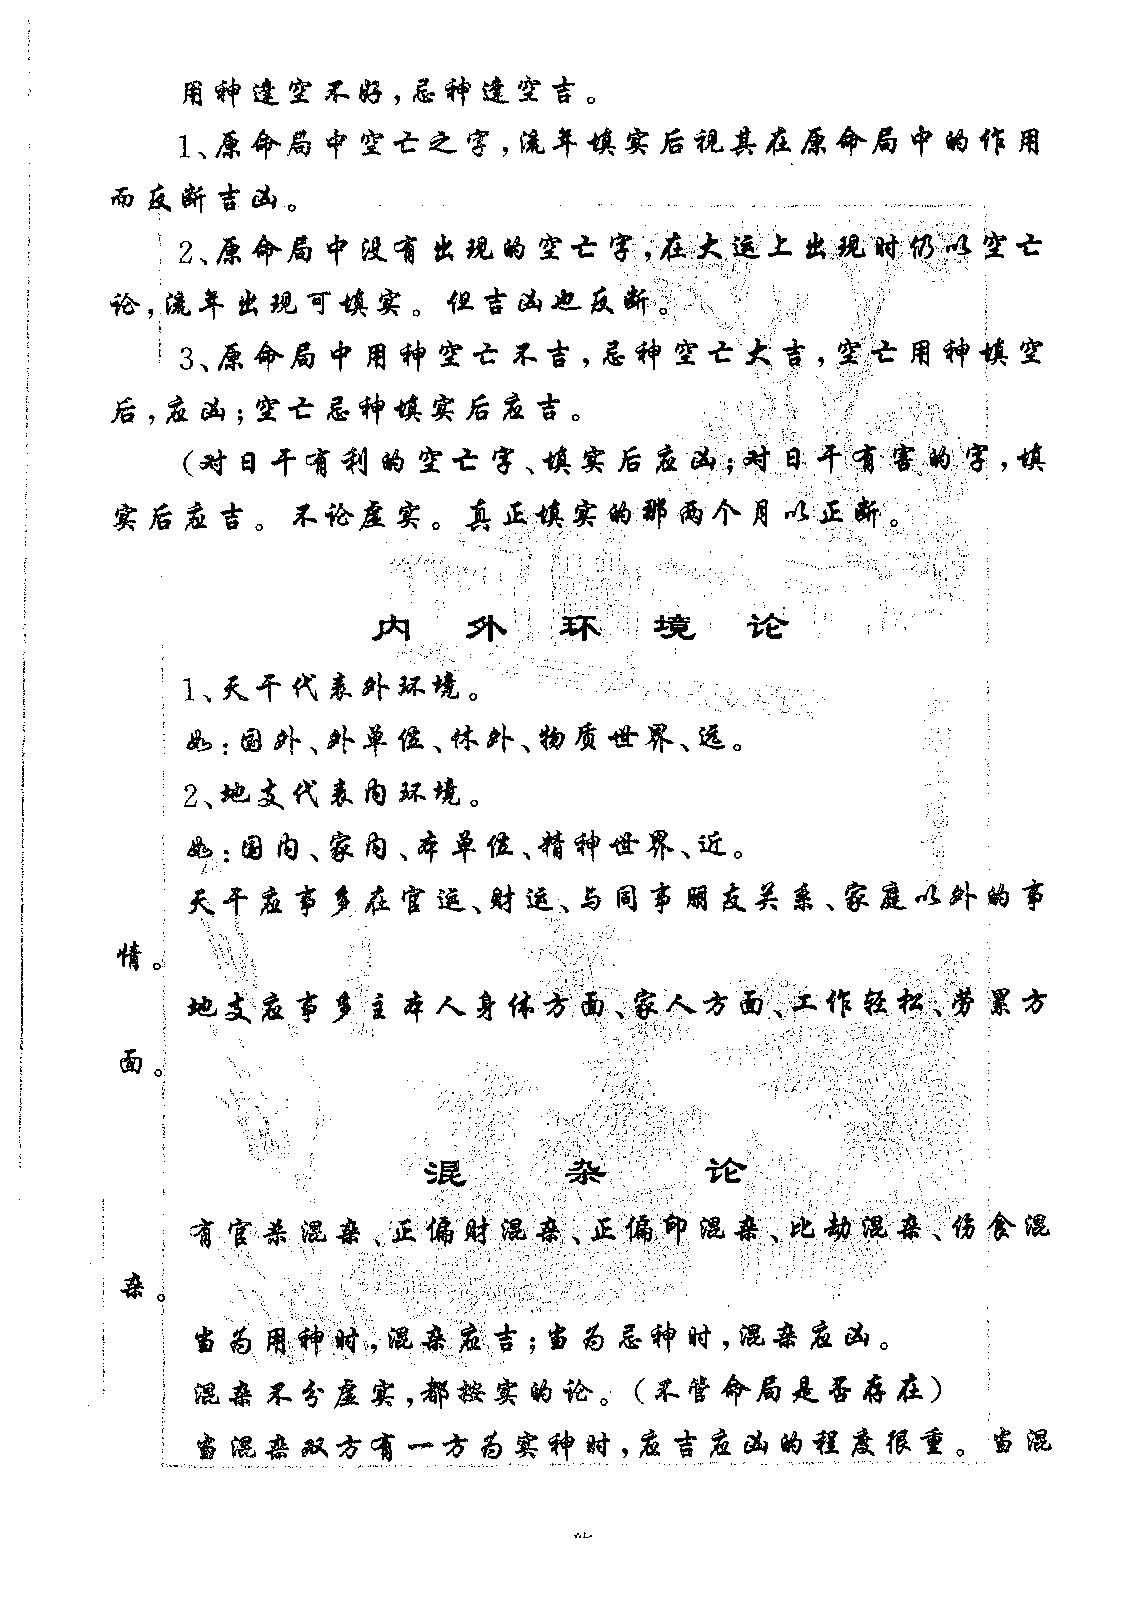 用神逢空不好,忌神逢空吉。
1、原命局中空亡之字,流年填实后视其在原命局中的作用
而反断吉凶。
2、原命局中没有出现的空亡字,在大运上出现时仍以空亡
论,流年出现可填实。但吉凶也反断。
3、原命局中用神空亡不吉,忌神空亡大吉,空亡用神填空
后,应凶;空亡忌神填实后应吉。
(对日干有利的空亡字、填实后应凶;对日干有害的字,填
实后应吉。不论虚实。真正填实的那两个月以正断。
内外环境论
1、天干代表外环境。
如:国外、外单位、体外、物质世界、远。
2、地支代表内环境。
如:国内、家内、本单位、精神世界、近。
天干应事多在官运、财运、与同事朋友关系、家庭以外的事
情。
地支应事多主本人身体方面、家人方面、工作轻松、劳累方
面。
混杂论
有官杀混杂、正偏财混杂、正偏印混杂、比劫混杂、伤食混
杂。
当为用神时,混杂应吉;当为忌神时,混杂应凶。
混杂不分虚实,都按实的论。(不管命局是否存在)
当混杂双方有一方为实神时,应吉应凶的程度很重。当混